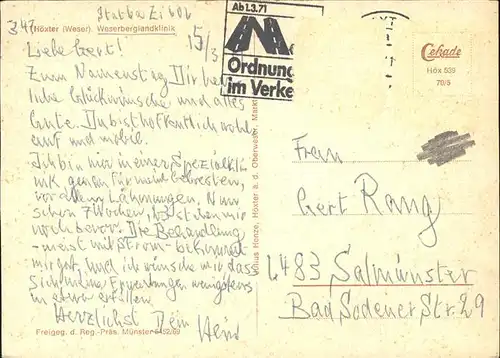 Station Zi 606
347
Höxter (Weser). Weserberglandklinik
15/3
Liebe Gert!
Zum Namenstag Dir herz
liche Glückwünsche und alles
Gute. Du bist hoffentlich wohl
auf und mobil.
Ich bin hier in einer Spezialkli
nik gen für meine
vor allem Lähmungen. Nun
schon 7 Wochen, stehen mir
noch bevor. Die Behandlung
- meist mit Strom - bekommt
mir gut, und ich wünsche mir dass
sich meine Erwartungen wenigstens
in etwa erfüllen.
Herzlichst Dein
Freigeg. d. Reg.-Präs. Münster 5452/69
Julius Henze, Höxter a. d. Oberweser, Markt
Ab 1.3.71
Ordnung
im Verke
Cekade
Höx 539
70/5
Frau
Gert Rang
6483 Salmünster
Bad Sodener Str. 29